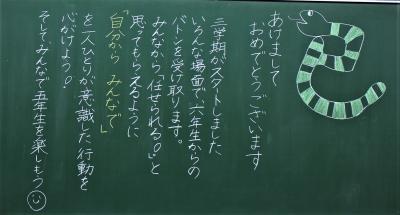 あけまして
おめでとうございます
三学期がスタートしました
いろんな場面で、六年生からの
バトンを受け取ります。
みんなから「任せられる。」と
思ってもらえるように
「自分から みんなで」
を一人ひとりが意識した行動を
心がけよう!
そしてみんなで五年生を楽しもう